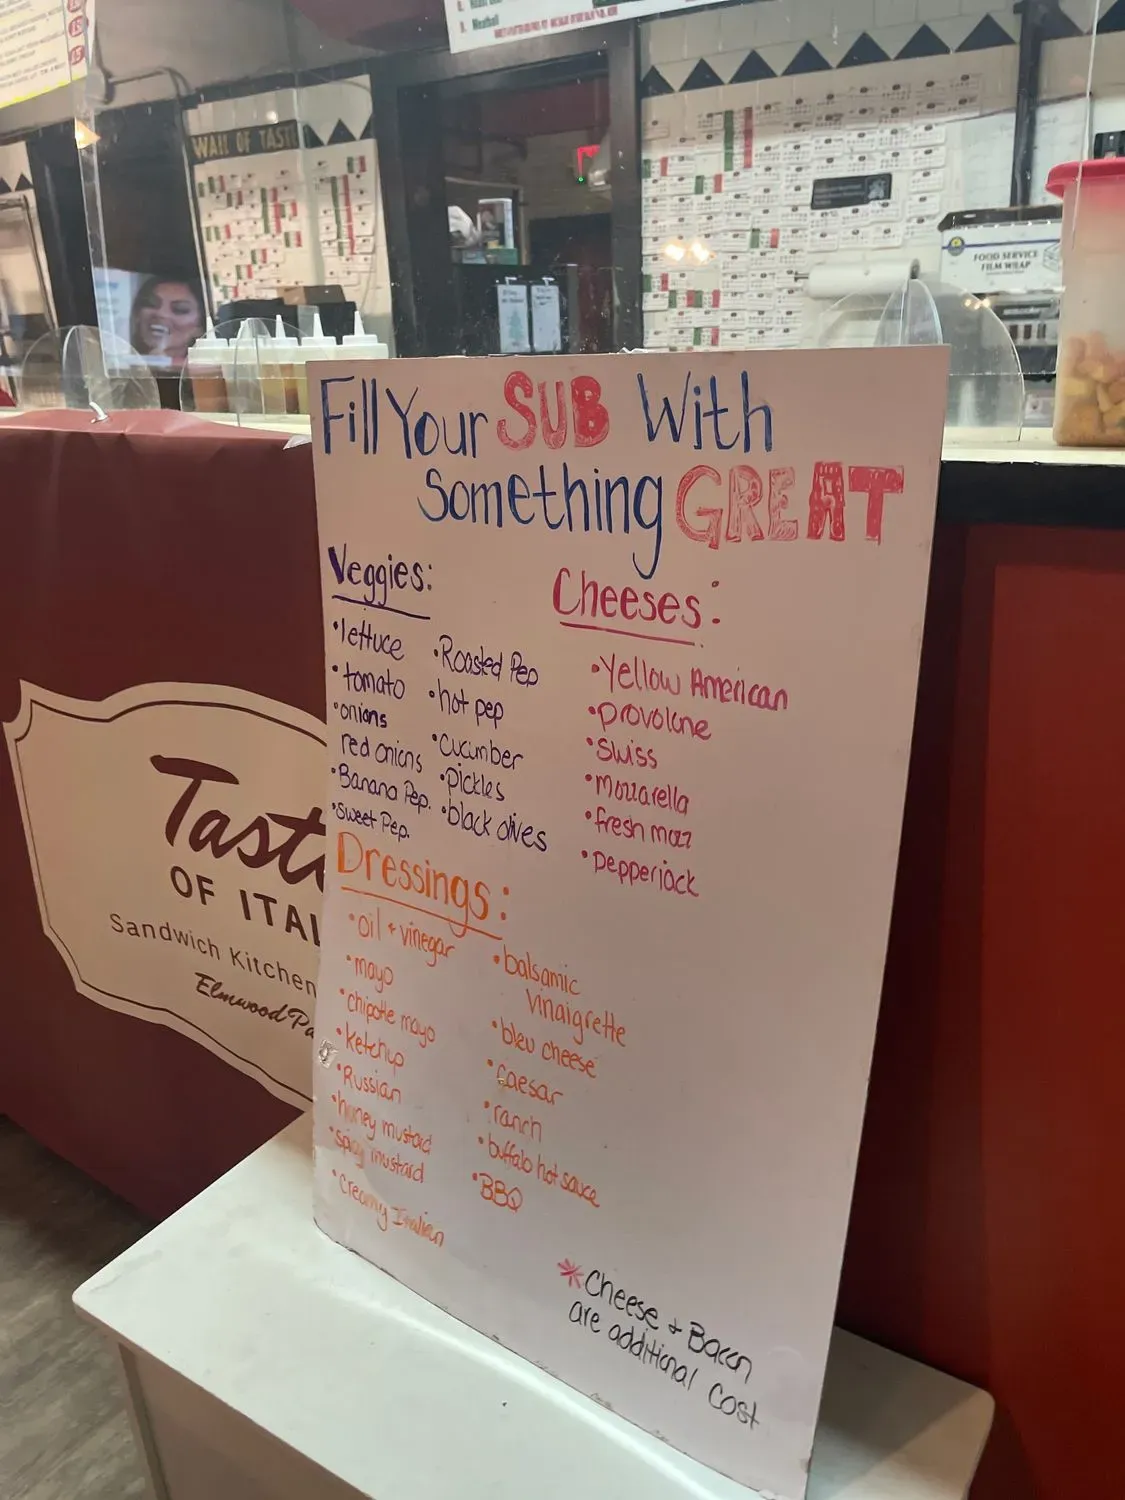 WALL OF TASTE
Meatball
FOOD SERVICE
FILM WRAP
Fill Your SUB With
Something GREAT
Veggies:
•lettuce
•tomato
•onions
red onions
•Banana Pep.
•Sweet Pep.
•Roasted Pep
•hot pep
•Cucumber
•Pickles
•black olives
Cheeses:
•Yellow American
•Provolone
•Swiss
•Mozzarella
•fresh mozz
•Pepperjack
Dressings:
•oil + vinegar
•mayo
•chipotle mayo
•ketchup
•Russian
•honey mustard
•spicy mustard
•Creamy Italian
•balsamic
Vinaigrette
•bleu cheese
•Caesar
•ranch
•buffalo hot sauce
•BBQ
*Cheese + Bacon
are additional Cost
Taste
OF ITAL
Sandwich Kitchen
Elmwood Pa